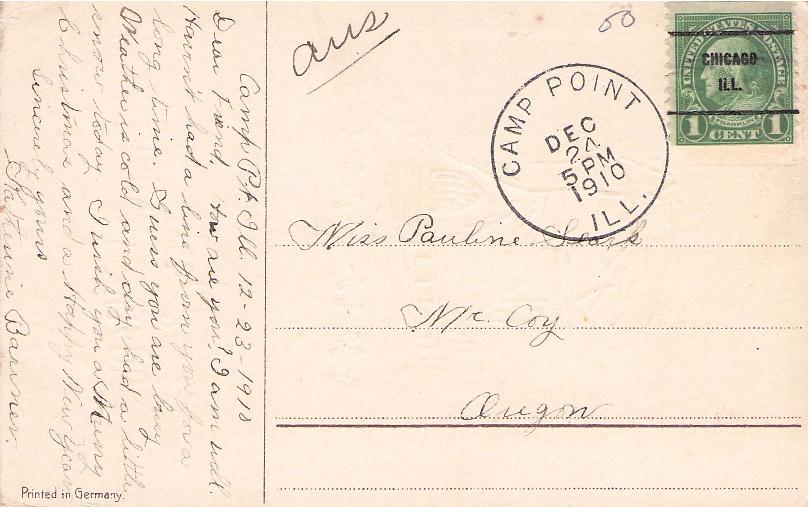 ans
UNITED STATES POSTAGE
CHICAGO
ILL.
FRANKLIN
1 CENT 1
CAMP POINT
DEC
24
5 PM
1910
ILL.
Miss Pauline
Mc Coy
Oregon
Camp Pt. Ill 12-23-1910
Dear Friend How are you? I am well.
Havn't had a line from you for a
long time. Guess you are busy
Mother is cold and day had a little
snow today. I wish you a Merry
Christmas and a Happy New Year
Sincerely yours
Katherine
Printed in Germany.